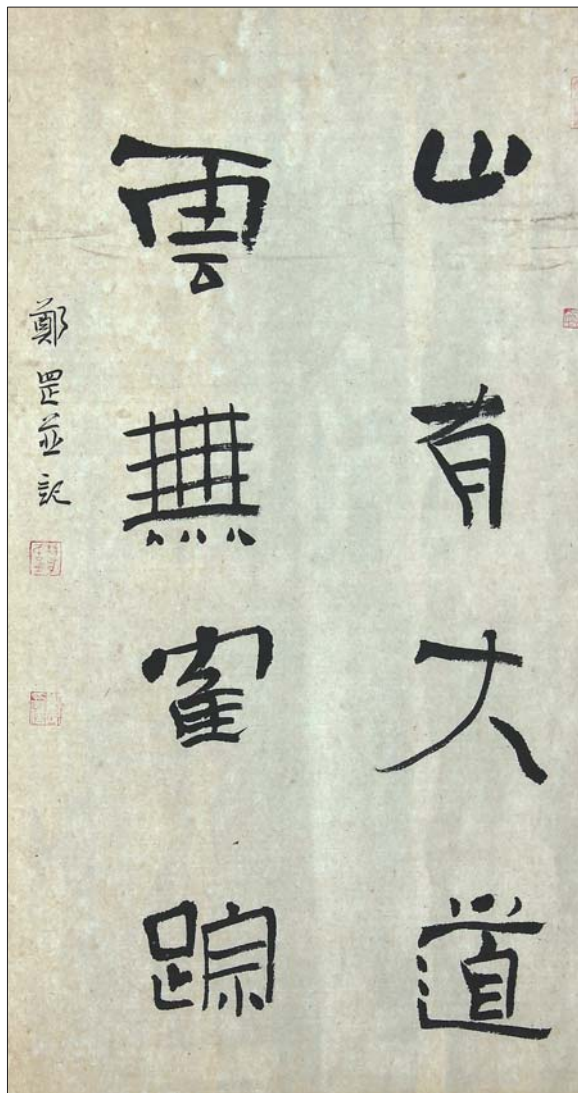 山有大道
雲無寉踪
鄭罡並記